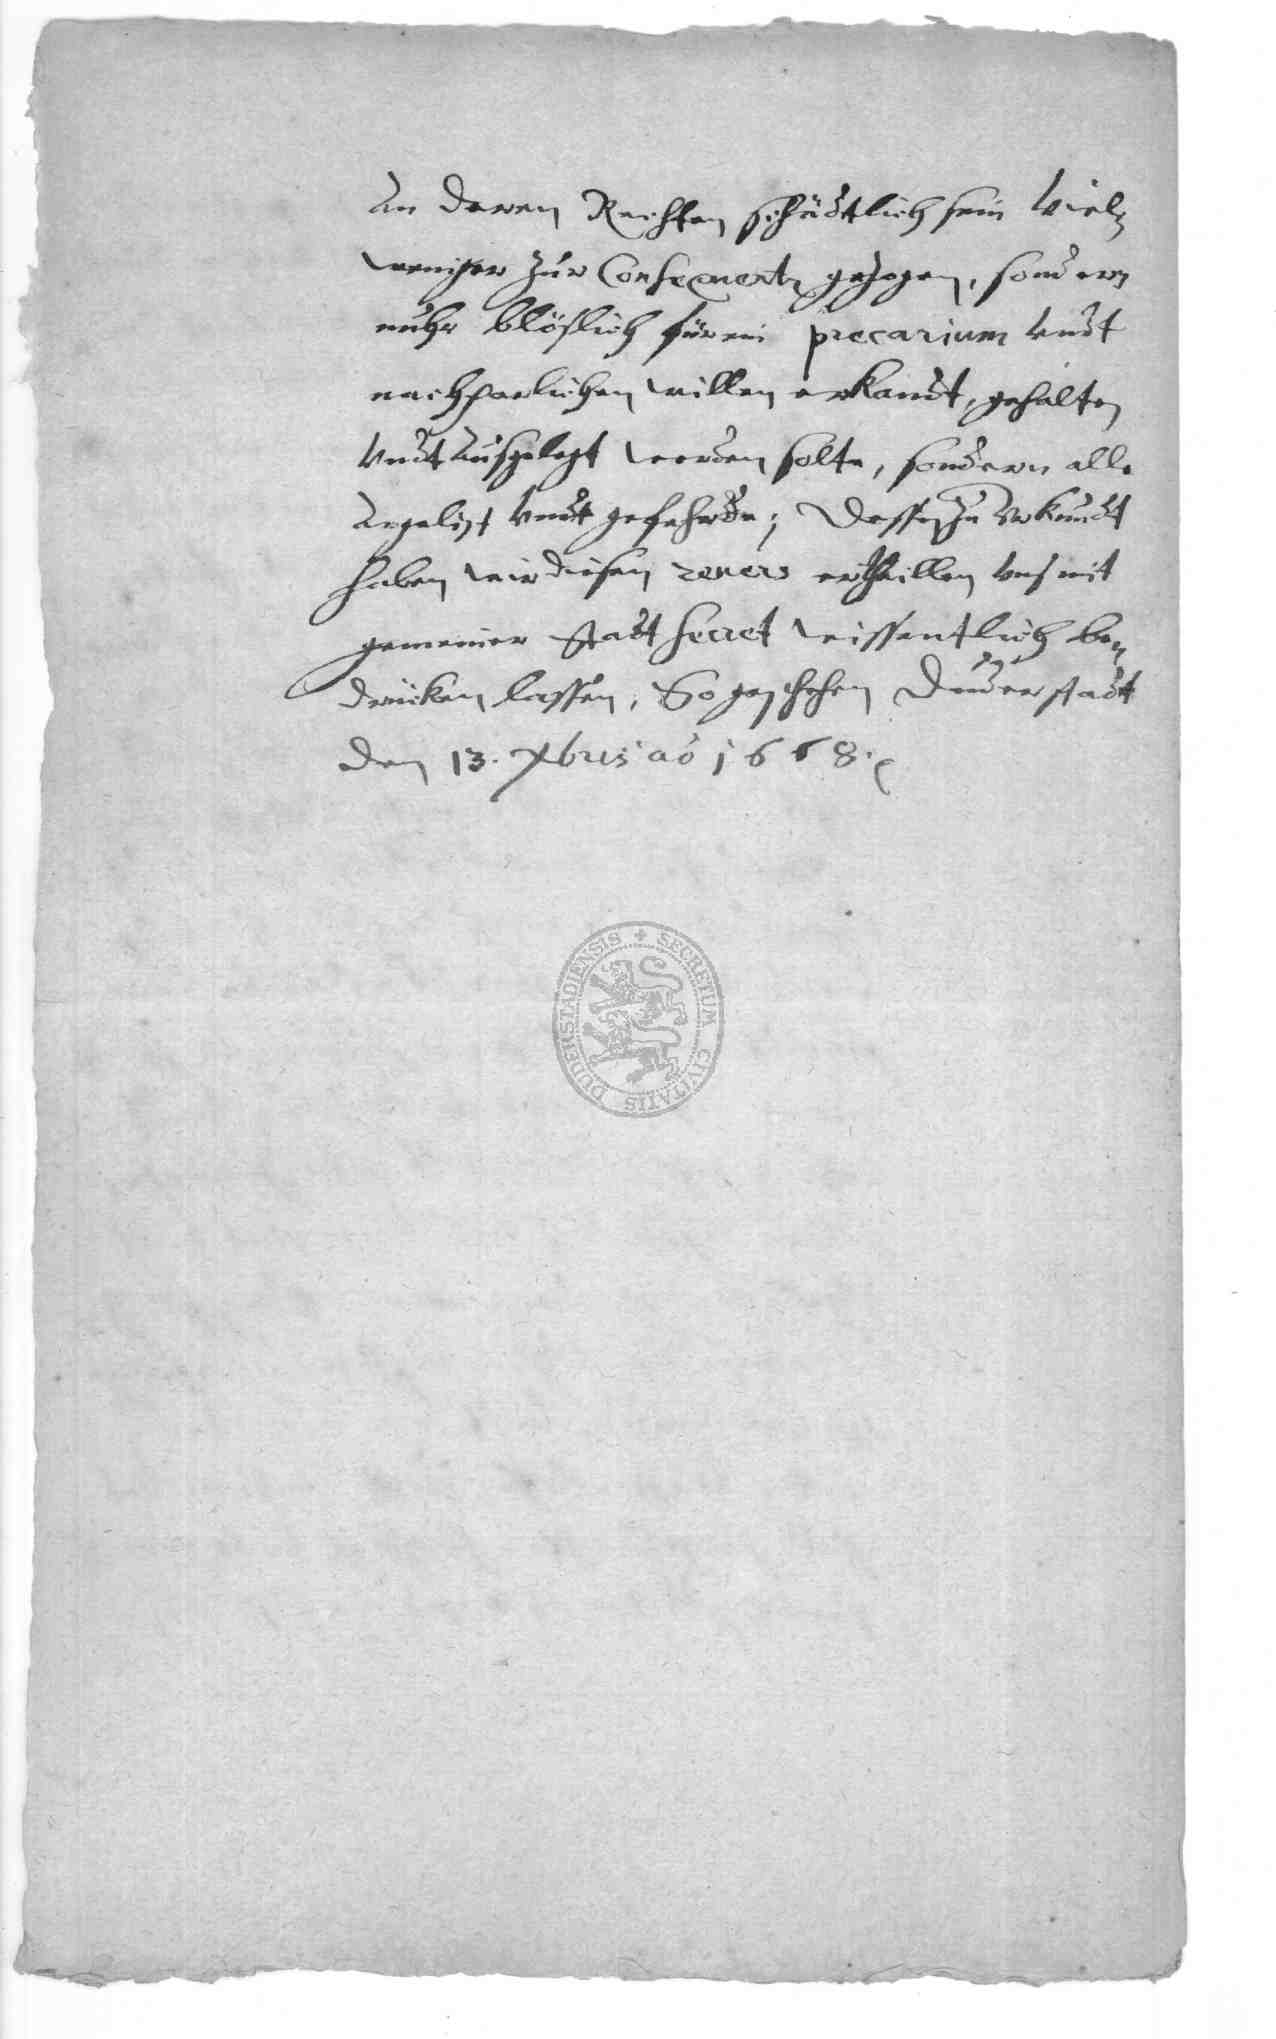 An deren Rechten schädtlich sein viel,
weniger zur Consequentz gezogen, sondern
nuhr blößlich für ein precarium vndt
nachbarlichen willen erkandt, gehalten
vndt außgelegt werden solte, sondern alle
Argelist vndt gefehrde; Dessen zu Vrkundt
haben wir diesen revers ertheillen vnd mit
gemeiner Stadt Secret wissentlich be,
drücken lassen, So geschehen Duderstadt
den 13. Xbris ao 1668.
SECRETUM CIVITATIS DUDERSTADIENSIS